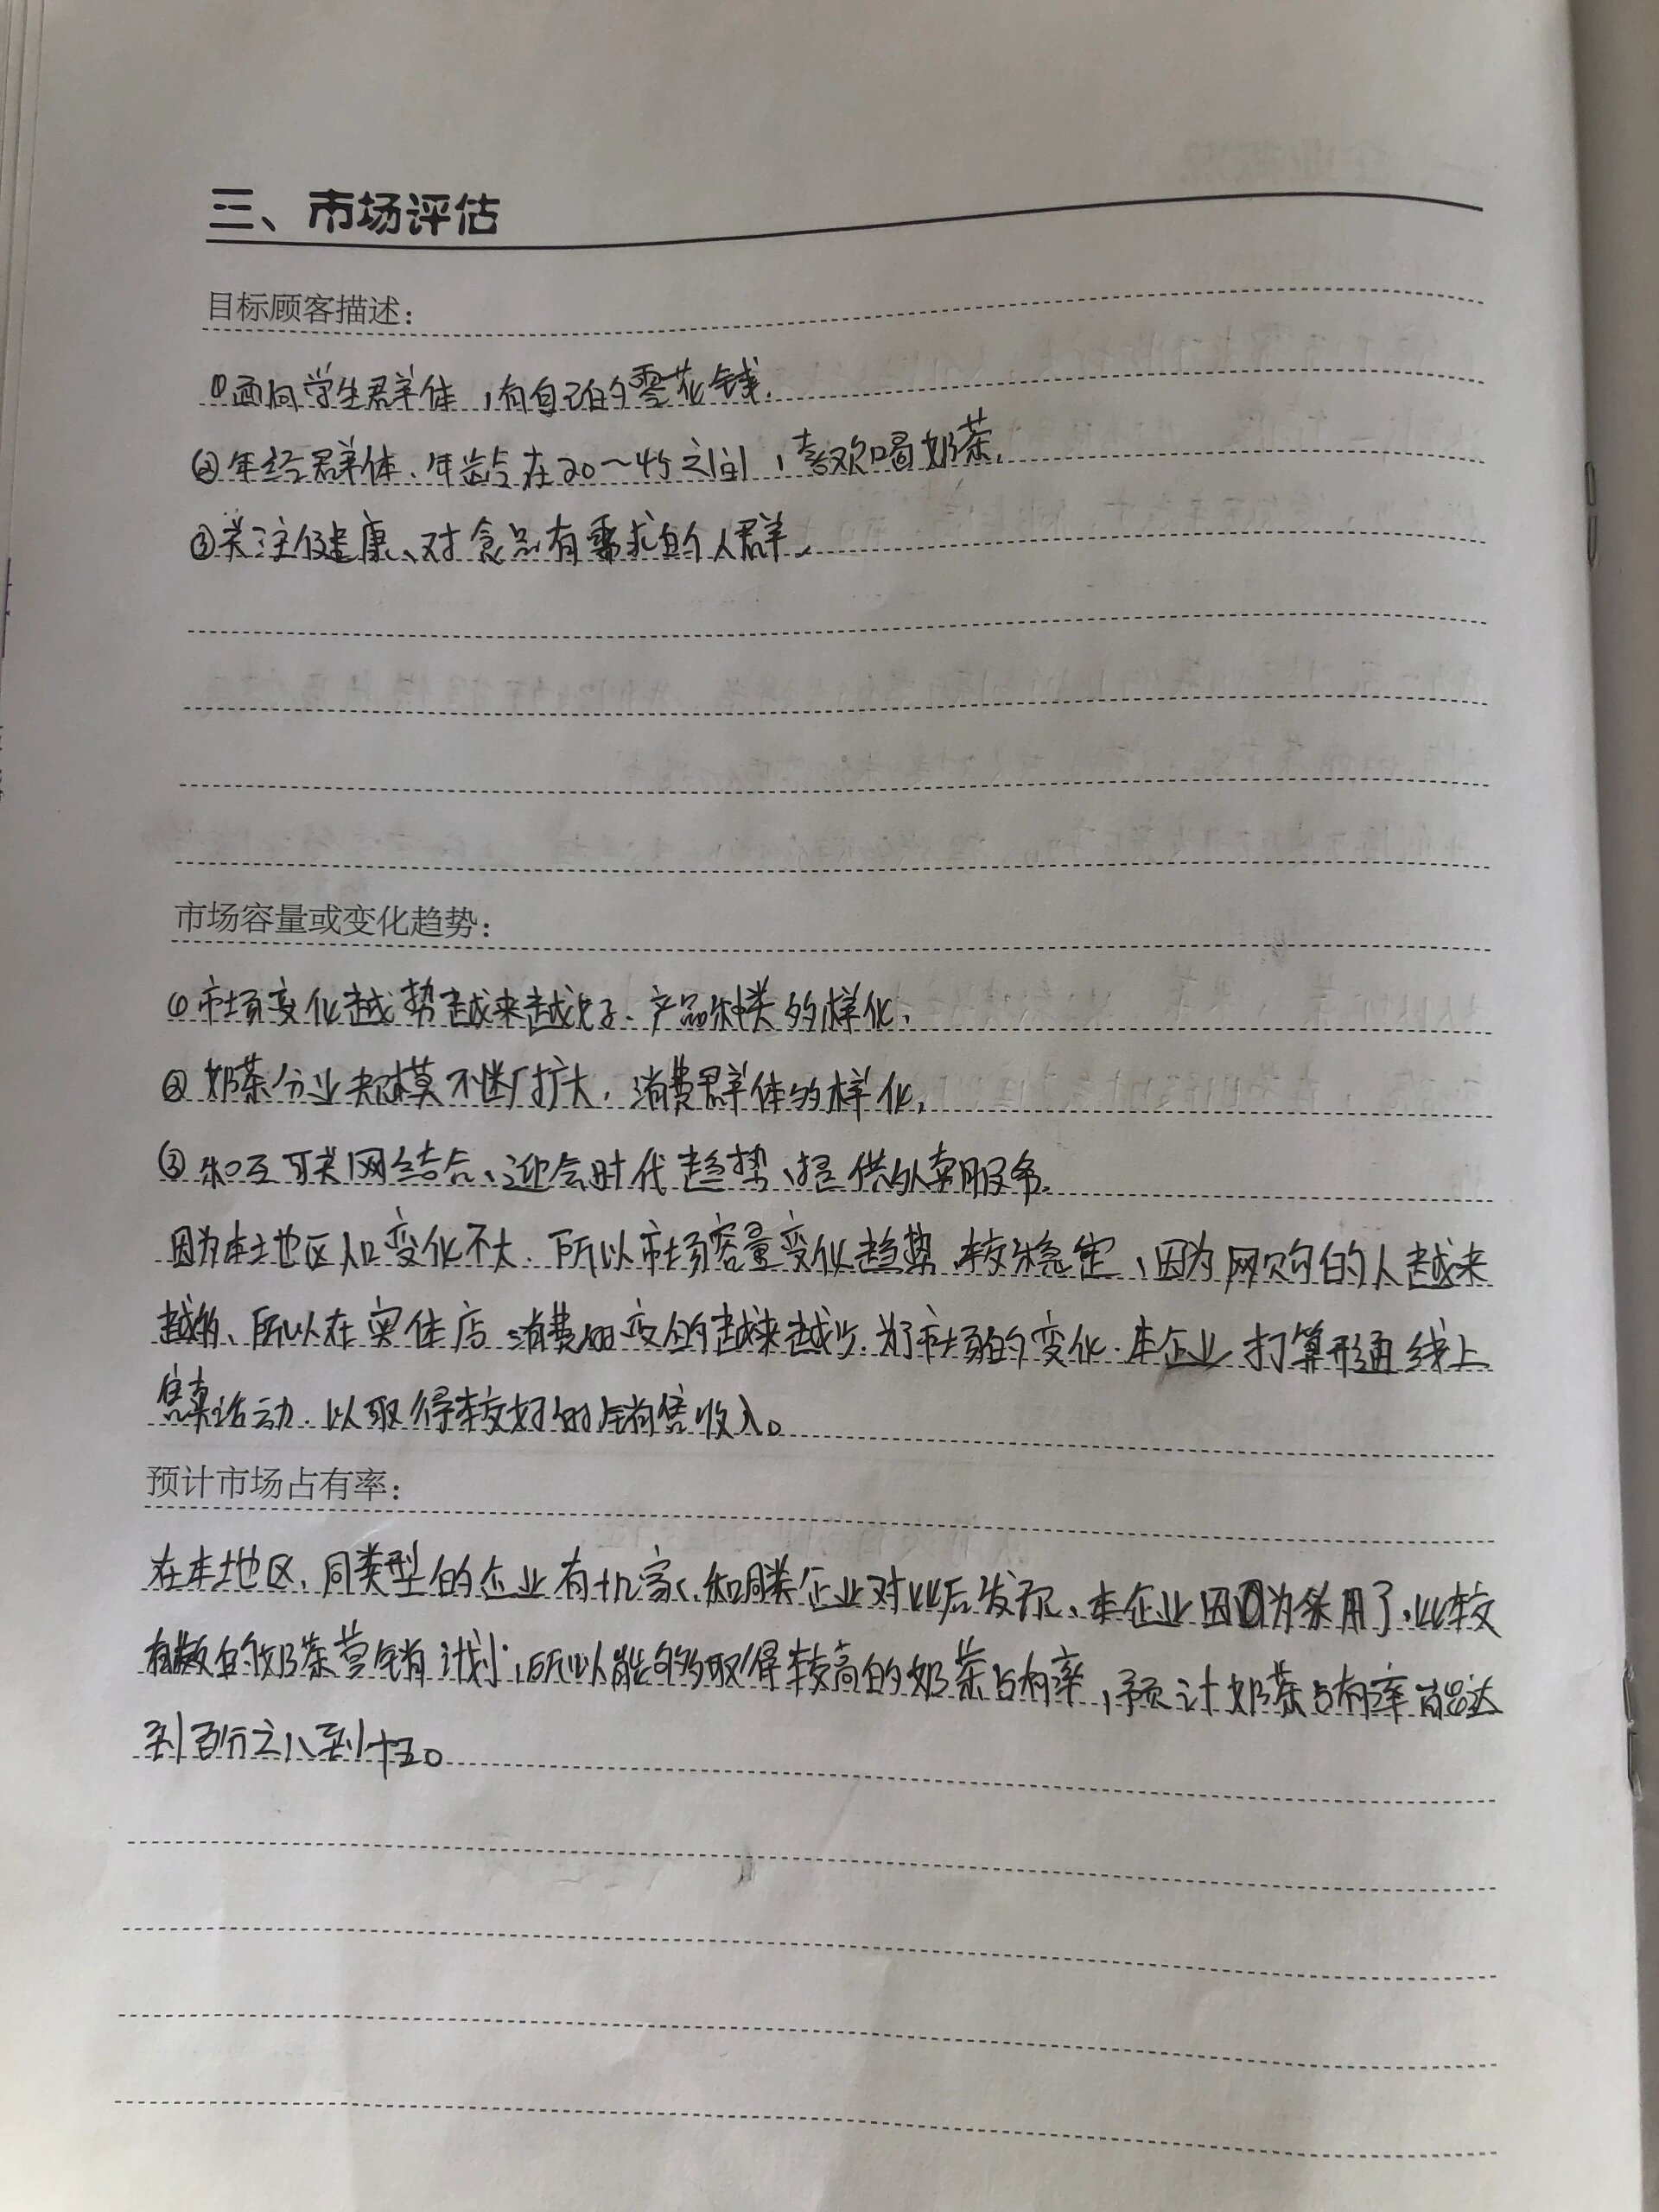 三、市场评估
目标顾客描述：
①面向学生群体，有自己的零花钱.
②年轻群体、年龄在20～45之间，喜欢喝奶茶.
③关注健康、对食品有需求的人群.
市场容量或变化趋势：
①市场变化趋势越来越好、产品种类多样化.
②奶茶分业规模不断扩大，消费群体多样化.
③和互联网结合、迎合时代趋势、提供外卖服务.
因为本土地区人口变化不大.所以市场容量变化趋势较稳定，因为网购的人越来
越多、所以在实体店消费变的越来越少.为了市场的变化.本企业打算开通线上
售卖活动.以取得较好的销售收入。
预计市场占有率：
在本地区，同类型的企业有十几家、和同类企业对比后发现、本企业因为采用了，比较
有效的奶茶营销计划，所以能够取得较高的奶茶占有率，预计奶茶占有率能达
到百分之八到十五。